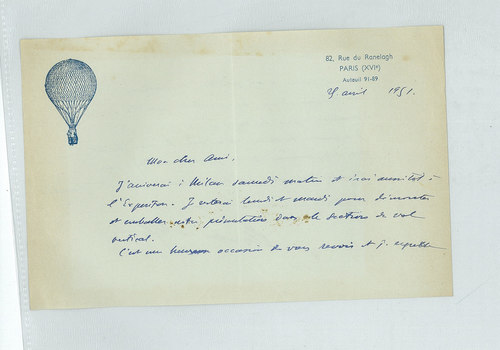 82, Rue du Ranelagh
PARIS (XVIᵉ)
Auteuil 91-89
avril 1951.
Mon cher Ami,
J'arriverai à Milan samedi matin et irai aussitôt à
l'Exposition. Je resterai lundi et mardi pour démonter
et emballer notre présentation dans le section de vol
vertical.
C'est une heureuse occasion de vous revoir et je